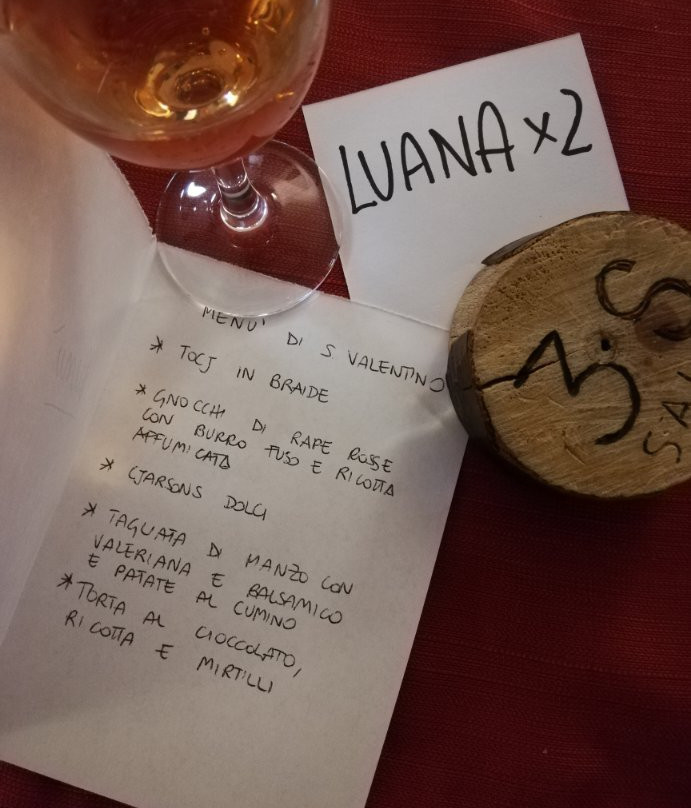 LUANA x2
MENU' DI S VALENTINO
* TOCJ IN BRAIDE
* GNOCCHI DI RAPE ROSSE
CON BURRO FUSO E RICOTTA
AFFUMICATA
* CJARSONS DOLCI
* TAGLIATA DI MANZO CON
VALERIANA E BALSAMICO
E PATATE AL CUMINO
* TORTA AL CIOCCOLATO,
RICOTTA E MIRTILLI
3.S